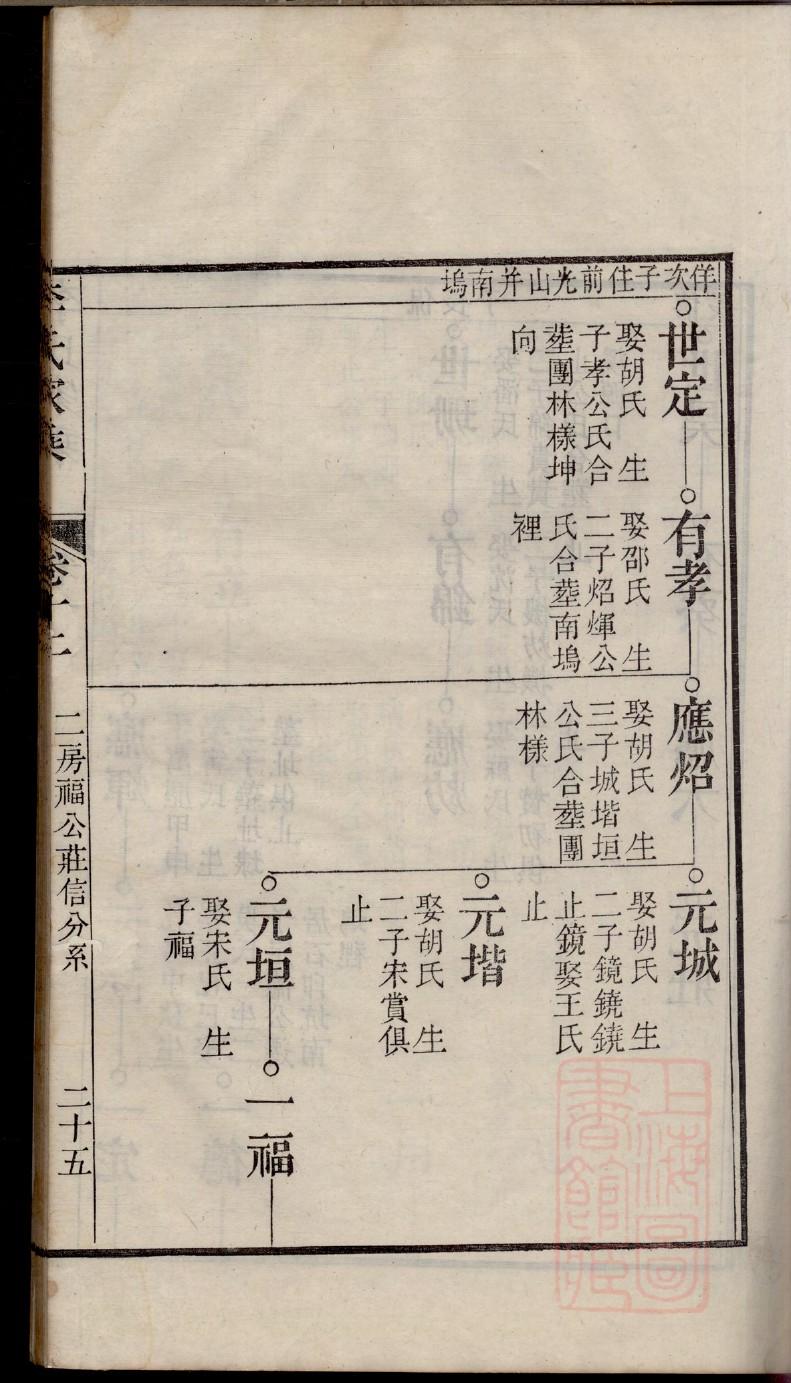 佯次子住前光山并南塢
世定
娶胡氏　生
子孝公氏合
塟團林樣坤
向
有孝
娶邵氏　生
二子炤煇公
氏合塟南塢
裡
應炤
娶胡氏　生
三子城堦垣
公氏合塟團
林樣
元城
娶胡氏　生
二子鏡鐃鐃
止鏡娶王氏
止
元堦
娶胡氏　生
二子宋賞俱
止
元垣
娶宋氏　生
子福
一福
李氏家乘
卷十二
二房福公莊信分系
二十五
上海圖
書館藏